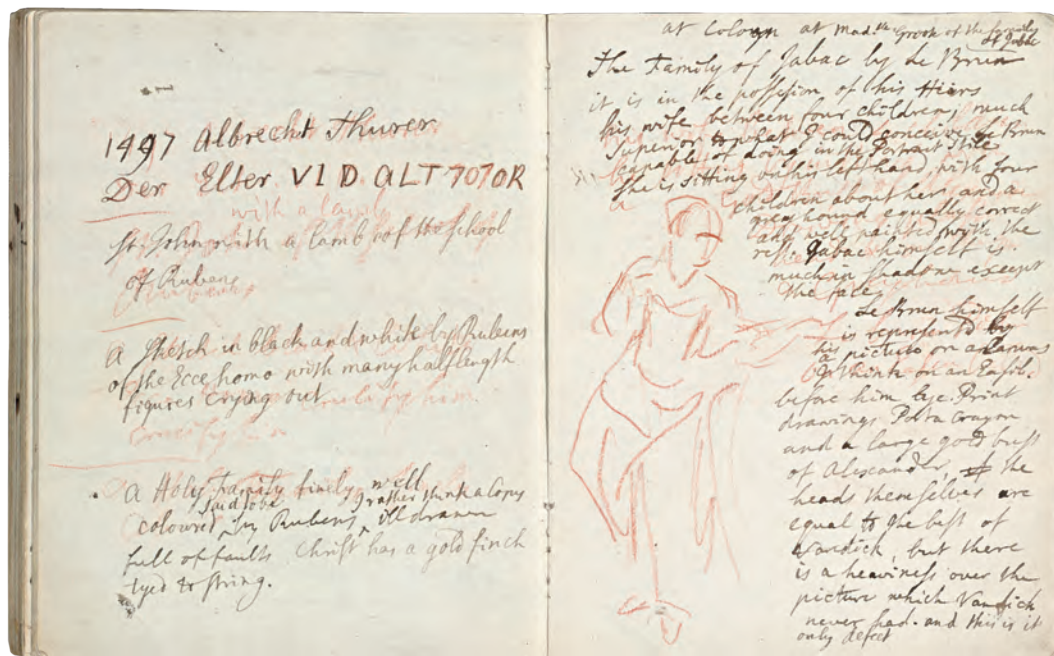 1497 Albrecht Thurer
Der Elter VID ALT 7070R
with a lamb
St. John with a lamb of the School
of Rubens
A Sketch in black and white by Rubens
of the Ecce homo with many half length
figures crying out
crucify him
A Holy Family finely well
said to be I rather think a Copy
coloured by Rubens, ill drawn
full of faults Christ has a gold finch
tyed to string.
at Cologn at Mad.me Groote of the family
of Jabac
The Family of Jabac by Le Brun
it is in the possession of his Heirs
his wife between four children, much
Superior to what I could conceive Le Brun
capable of doing in the Portrait Stile
She is sitting on his left hand, with four
children about her and a
grey hound equally correct
and well painted with the
rest. Jabac himself is
much in shadow except
the face
Le Brun himself
is represented by
his picture on a Canvas
I think on an Easil.
before him lye Print
drawings Porta Crayon
and a large gold bust
of Alexander, the
heads themselves are
equal to the best of
Vandick, but there
is a heaviness over the
picture which Vandick
never had. and this is it
only defect